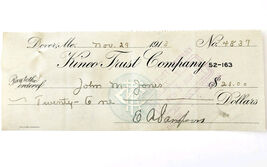 Dover, Me. Nov. 29 1913 No. 4837
Kineo Trust Company 52-163
Pay to the order of John M. Jones $21.00
Twenty-One Dollars